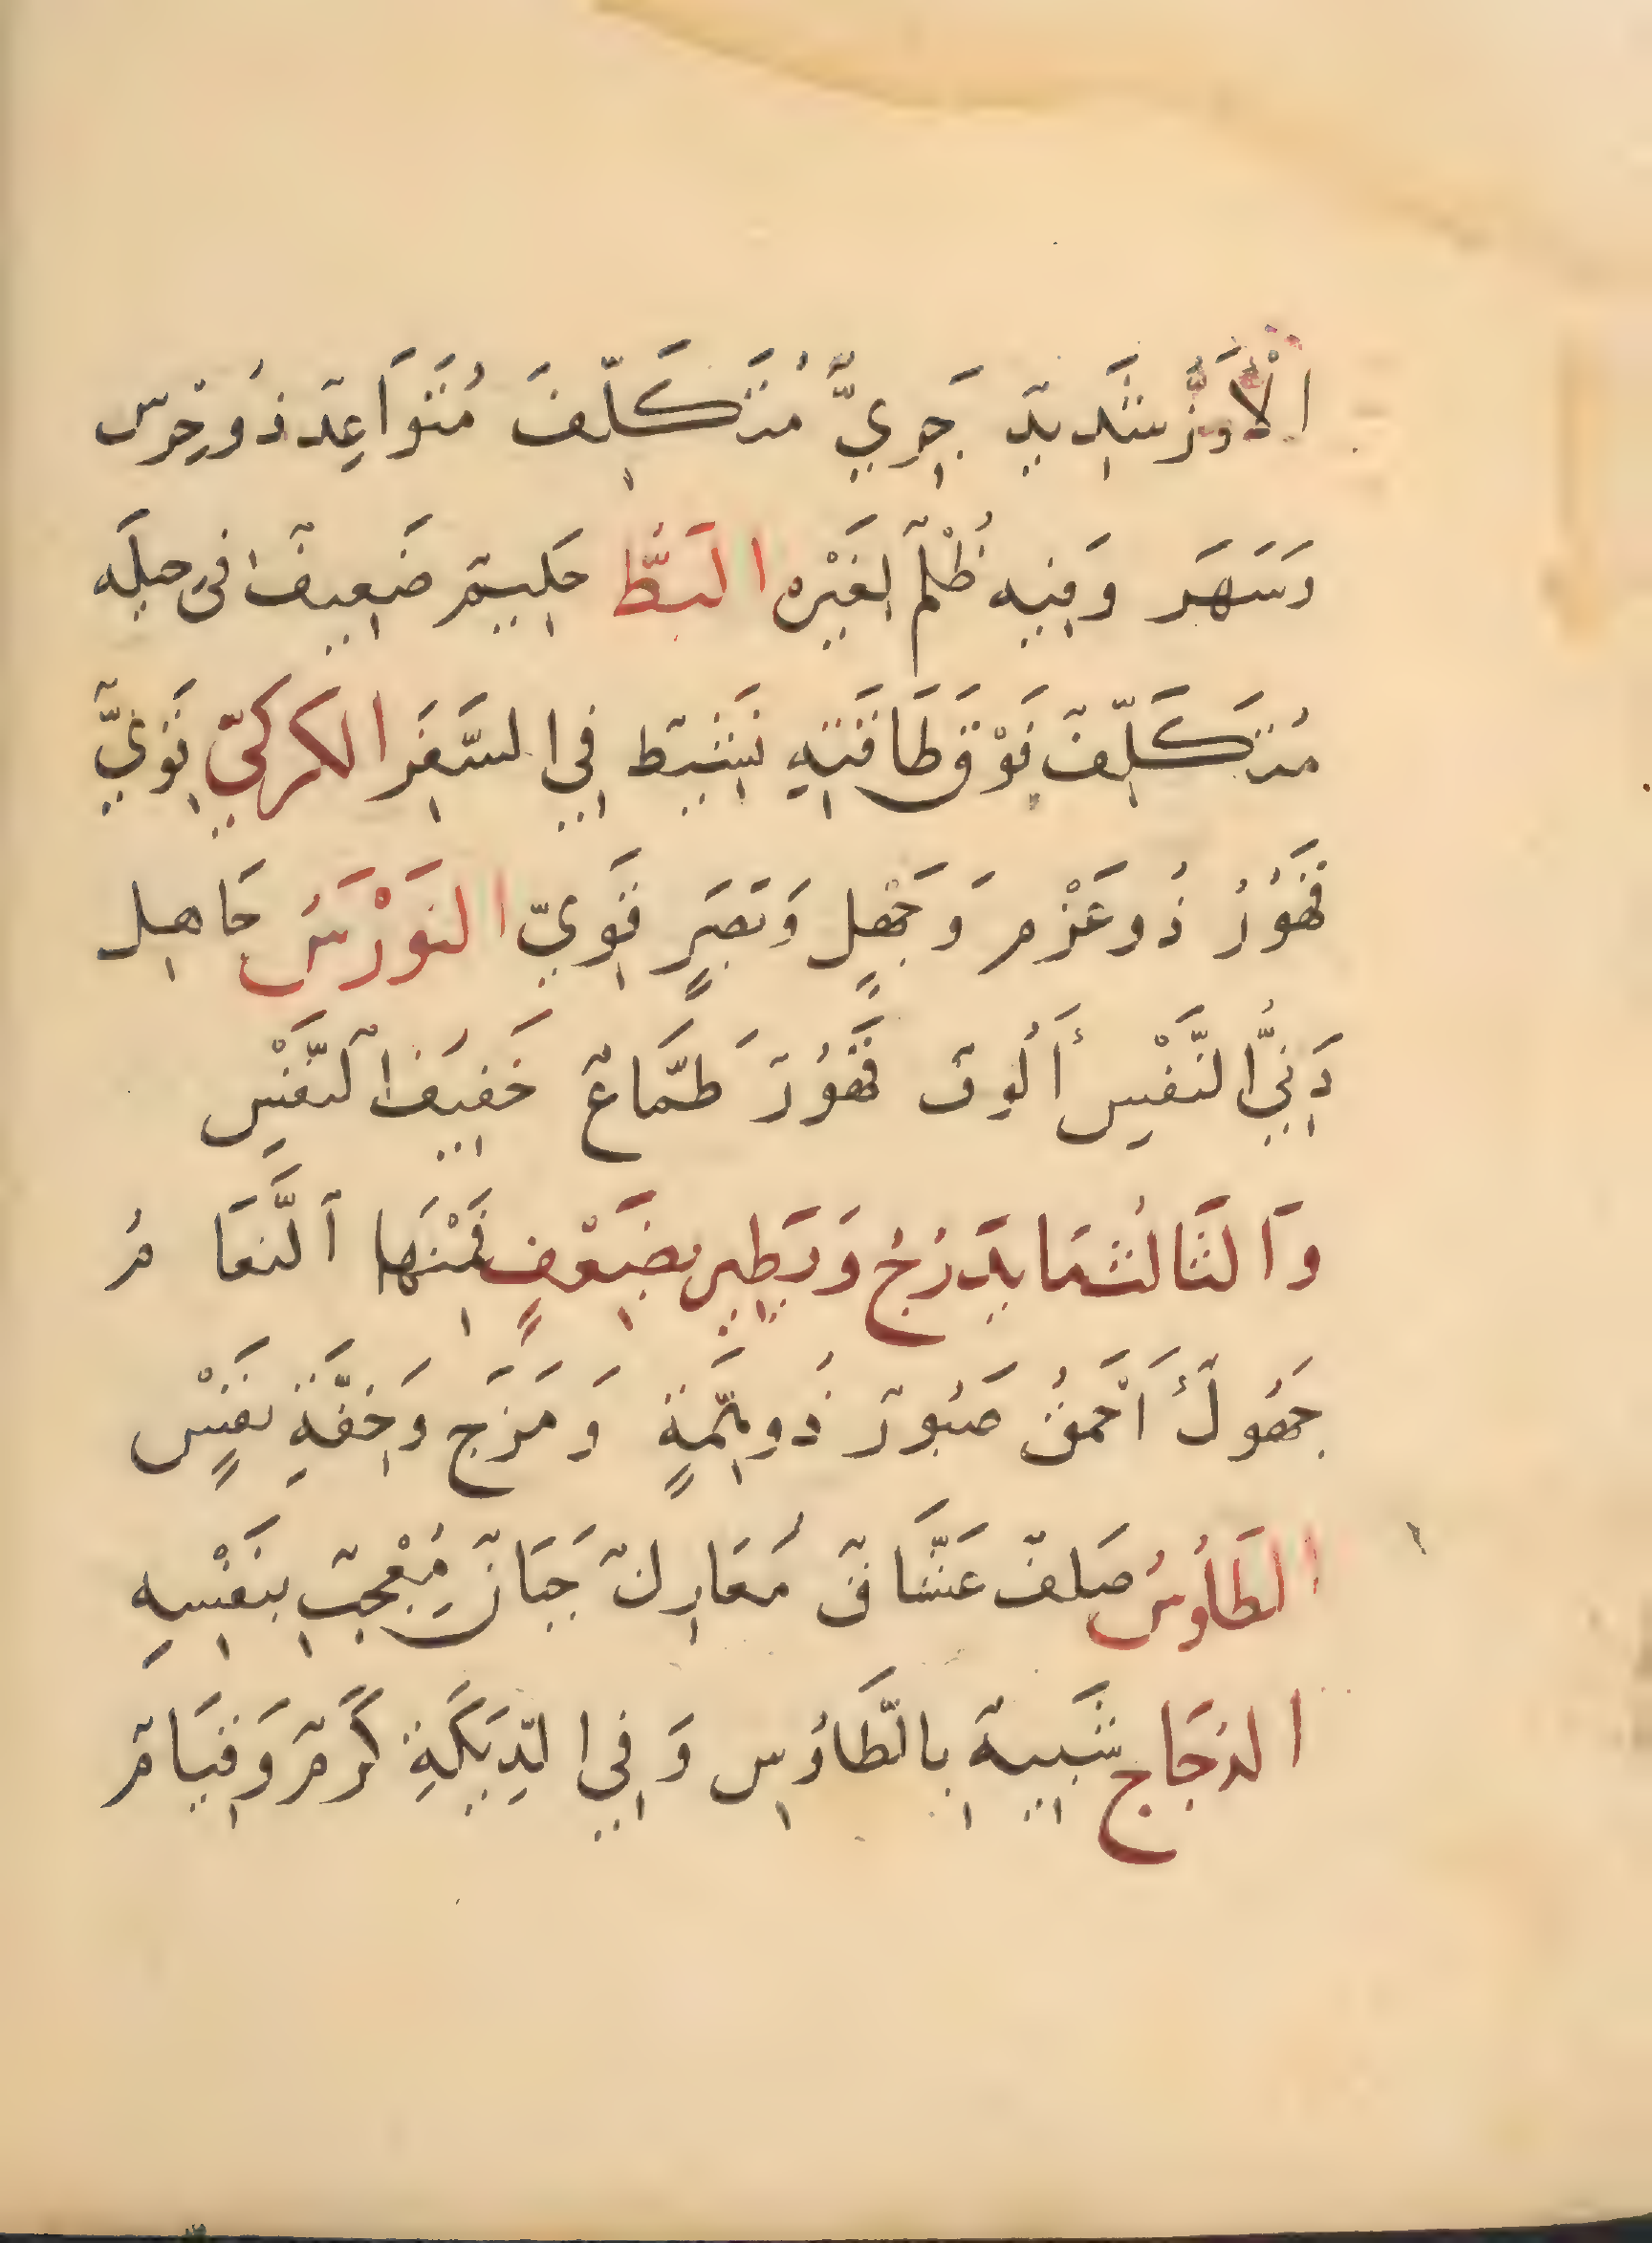 الْأَوَزُّ شَدِيدٌ جَرِيٌّ مُتَكَلِّفٌ مُتَوَاعِدٌ ذُو حِرْس
وَسَهَر وَفِيه ظُلْمٌ لِغَيْرِه البَطُّ حَلِيمٌ ضَعِيفٌ فى حيله
مُتَكَلِّفٌ فَوْق طَاقَتِهِ نَشِيطٌ فِي السَّفَر الكركيّ قَوِيٌّ
قَهُورٌ ذُو عَزْمٍ وَجَهْلٍ وَبَصَرٍ قَوِيّ النَوْرَسُ جَاهِل
دَنِيُّ النَّفْسِ أَلُوفٌ قَهُورٌ طَمَّاعٌ خَفِيفُ ٱلنَّفْسِ
وَٱلثَّالثُ مَا يَدْرُجُ وَيَطِيرُ بِضَعْفٍ فَمِنْهَا ٱلنَّعَامُ
جَهُولٌ أَحْمَقُ صَبُورٌ ذُو هِمَّةٍ وَمَرَحٍ وَخِفَّةِ نَفْسٍ
الطَاوُسُ صَلِفٌ عَشَّاقٌ مُعَارِكٌ جَبَانٌ مُعْجَبٌ بِنَفْسِهِ
الدُجَاج شَبِيهٌ بِالطَّاوُسِ وَفِي الدِّيَكَةِ كَرَمٌ وَقِيَامٌ